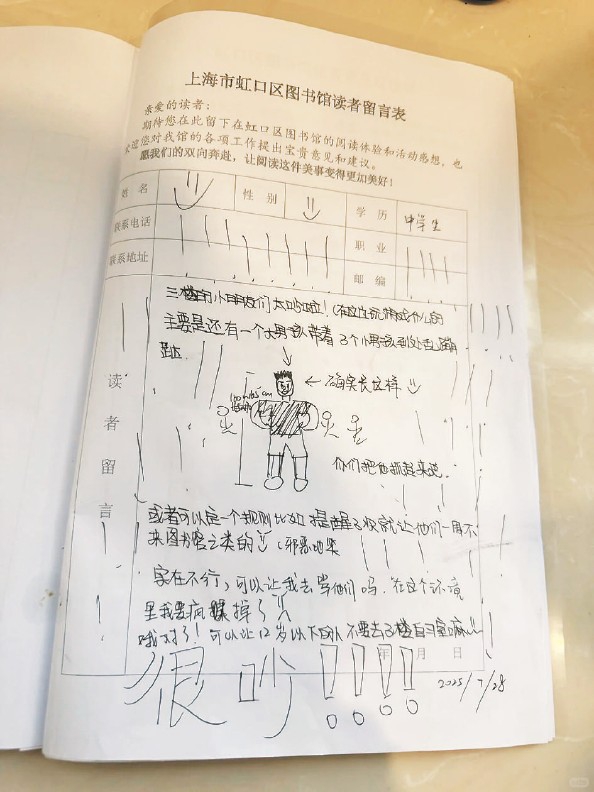 上海市虹口区图书馆读者留言表
亲爱的读者：
期待您在此留下在虹口区图书馆的阅读体验和活动感想，也
欢迎您对我馆的各项工作提出宝贵意见和建议。
愿我们的双向奔赴，让阅读这件美事变得更加美好！
姓 名
性 别
学 历
中学生
联系电话
职 业
联系地址
邮 编
三楼的小朋友们太吵啦！
主要是还有一个大男孩带着3个小男孩到处乱
← 确实长这样
你们把他抓起来说.
读者留言
或者可以定一个规则比如提醒3次就让他们一周不
来图书馆之类的（邪恶地笑
实在不行，可以让我去当他们吗. 在这个环境
里我要疯掉了
哦对了！可以让12岁以下的人不要去3楼自习室嘛
年 月 日
很吵！！！！
2025/7/28